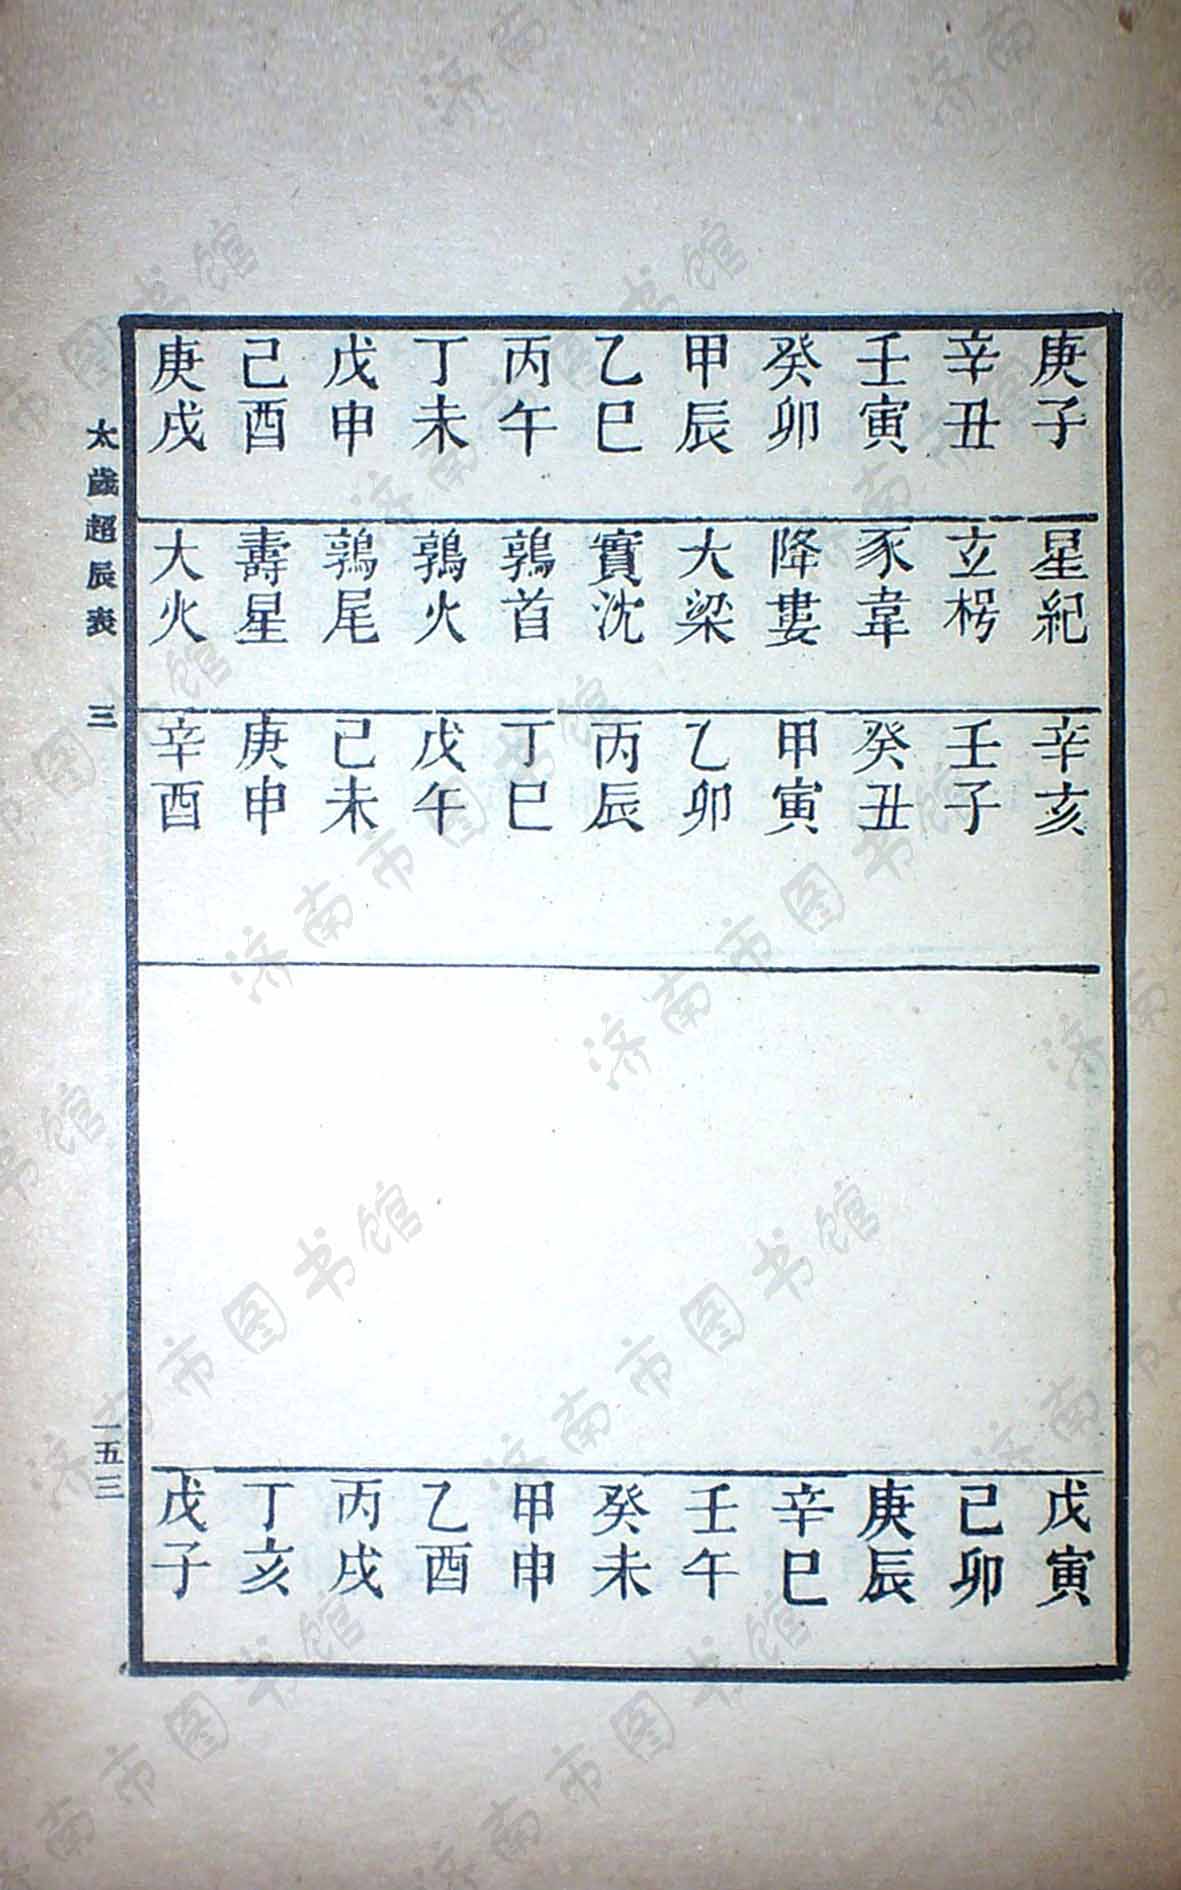 庚子 星紀 辛亥 戊寅
辛丑 立枵 壬子 己卯
壬寅 豕韋 癸丑 庚辰
癸卯 降婁 甲寅 辛巳
甲辰 大梁 乙卯 壬午
乙巳 實沈 丙辰 癸未
丙午 鶉首 丁巳 甲申
丁未 鶉火 戊午 乙酉
戊申 鶉尾 己未 丙戌
己酉 壽星 庚申 丁亥
庚戌 大火 辛酉 戊子
太歲超辰表 三 一五三
济南市图书馆